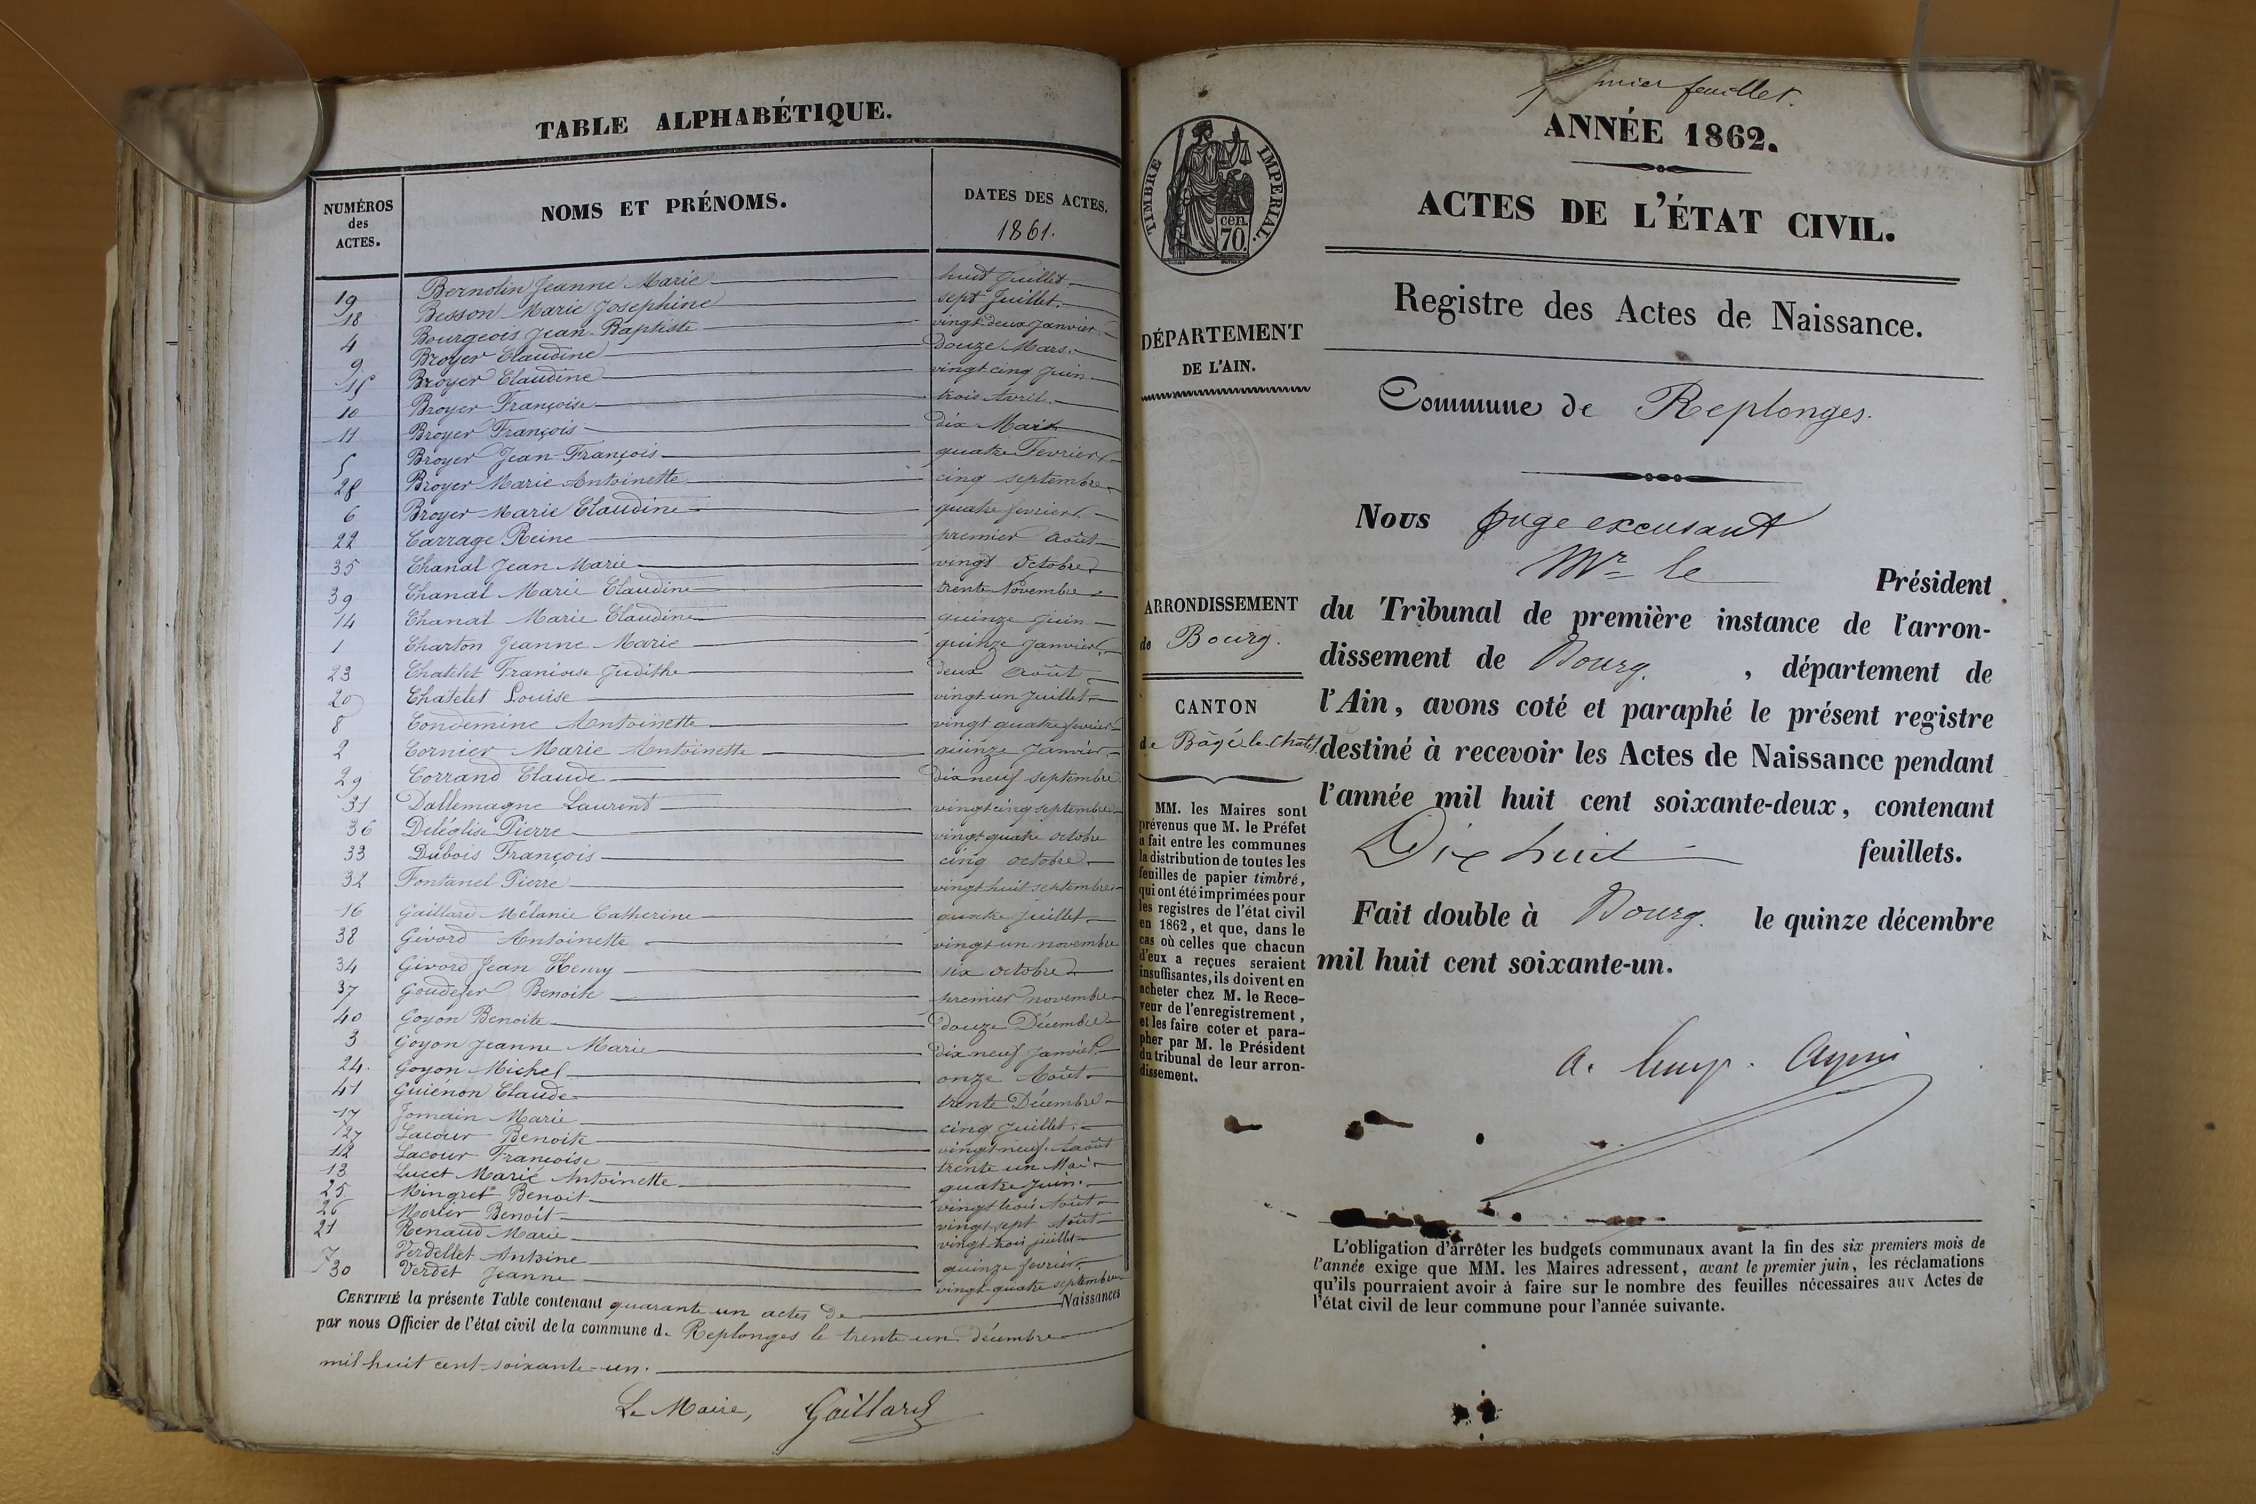 TABLE ALPHABÉTIQUE.
NUMÉROS des ACTES. NOMS ET PRÉNOMS. DATES DES ACTES. 1861.
19 Bernolin Jeanne Marie huit Juillet
18 Besson Marie Josephine sept Juillet
4 Bourgeois Jean-Baptiste vingt-deux Janvier
9 Broyer Claudine Douze Mars
15 Broyer Claudine vingt cinq Juin
10 Broyer Françoise trois Avril
11 Broyer François dix Mai
5 Broyer Jean-François quatre Fevrier
28 Broyer Marie Antoinette cinq septembre
6 Broyer Marie Claudine quatre fevrier
22 Carrage Reine premier Août
35 Chanal Jean Marie vingt Octobre
39 Chanal Marie Claudine trente Novembre
14 Chanal Marie Claudine quinze Juin
1 Charton Jeanne Marie quinze Janvier
23 Chatelet Francoise Judithe deux Août
20 Chatelet Louise vingt un Juillet
8 Condemine Antoinette vingt quatre fevrier
2 Cornier Marie Antoinette quinze Janvier
29 Corrand Claude dix neuf septembre
31 Dallemagne Laurent vingt cinq septembre
36 Deléglise Pierre vingt quatre octobre
33 Dubois François cinq octobre
32 Fontanel Pierre vingt huit septembre
16 Gaillard Mélanie Catherine quatre Juillet
38 Givord Antoinette vingt un novembre
34 Givord Jean Henry six octobre
37 Benoite premier novembre
40 Goyon Benoite douze Décembre
3 Goyon Jeanne Marie dix neuf Janvier
24. Goyon Michel onze Août
41 Guiénon Claude trente Décembre
17 Jomain Marie cinq Juillet
27 Lacour Benoite vingt-neuf Aaoût
12 Lacour Francoise trente un Mai
13 Lucet Marie Antoinette quatre Juin
25 Mingret Benoit vingt trois Août
26 Morier Benoit vingt sept Août
21 Renaud Marie vingt trois juillet
7 Verdellet Antoine quinze fevrier
30 Verdet Jeanne vingt-quatre septembre
CERTIFIÉ la présente Table contenant quarante un actes de Naissances
par nous Officier de l'état civil de la commune de Replonges le trente un décembre
mil huit cent soixante-un.
Le Maire, Gaillard
feuillet.
ANNÉE 1862.
ACTES DE L'ÉTAT CIVIL.
TIMBRE IMPERIAL.
cen. 70.
Registre des Actes de Naissance.
DÉPARTEMENT
DE L'AIN.
Commune de Replonges.
ARRONDISSEMENT
de Bourg.
CANTON
de Bâgé-le-Chatel
MM. les Maires sont
prévenus que M. le Préfet
a fait entre les communes
la distribution de toutes les
feuilles de papier timbré,
qui ont été imprimées pour
les registres de l'état civil
en 1862, et que, dans le
cas où celles que chacun
d'eux a reçues seraient
insuffisantes, ils doivent en
acheter chez M. le Rece-
veur de l'enregistrement,
et les faire coter et para-
pher par M. le Président
du tribunal de leur arron-
dissement.
Nous Juge excusant
Mr le Président
du Tribunal de première instance de l'arron-
dissement de Bourg. , département de
l'Ain, avons coté et paraphé le présent registre
destiné à recevoir les Actes de Naissance pendant
l'année mil huit cent soixante-deux, contenant
Dix huit feuillets.
Fait double à Bourg. le quinze décembre
mil huit cent soixante-un.
L'obligation d'arrêter les budgets communaux avant la fin des six premiers mois de
l'année exige que MM. les Maires adressent, avant le premier juin, les réclamations
qu'ils pourraient avoir à faire sur le nombre des feuilles nécessaires aux Actes de
l'état civil de leur commune pour l'année suivante.